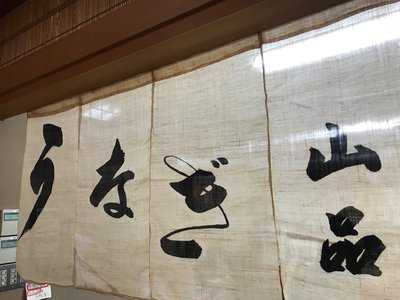 うなぎ
山品